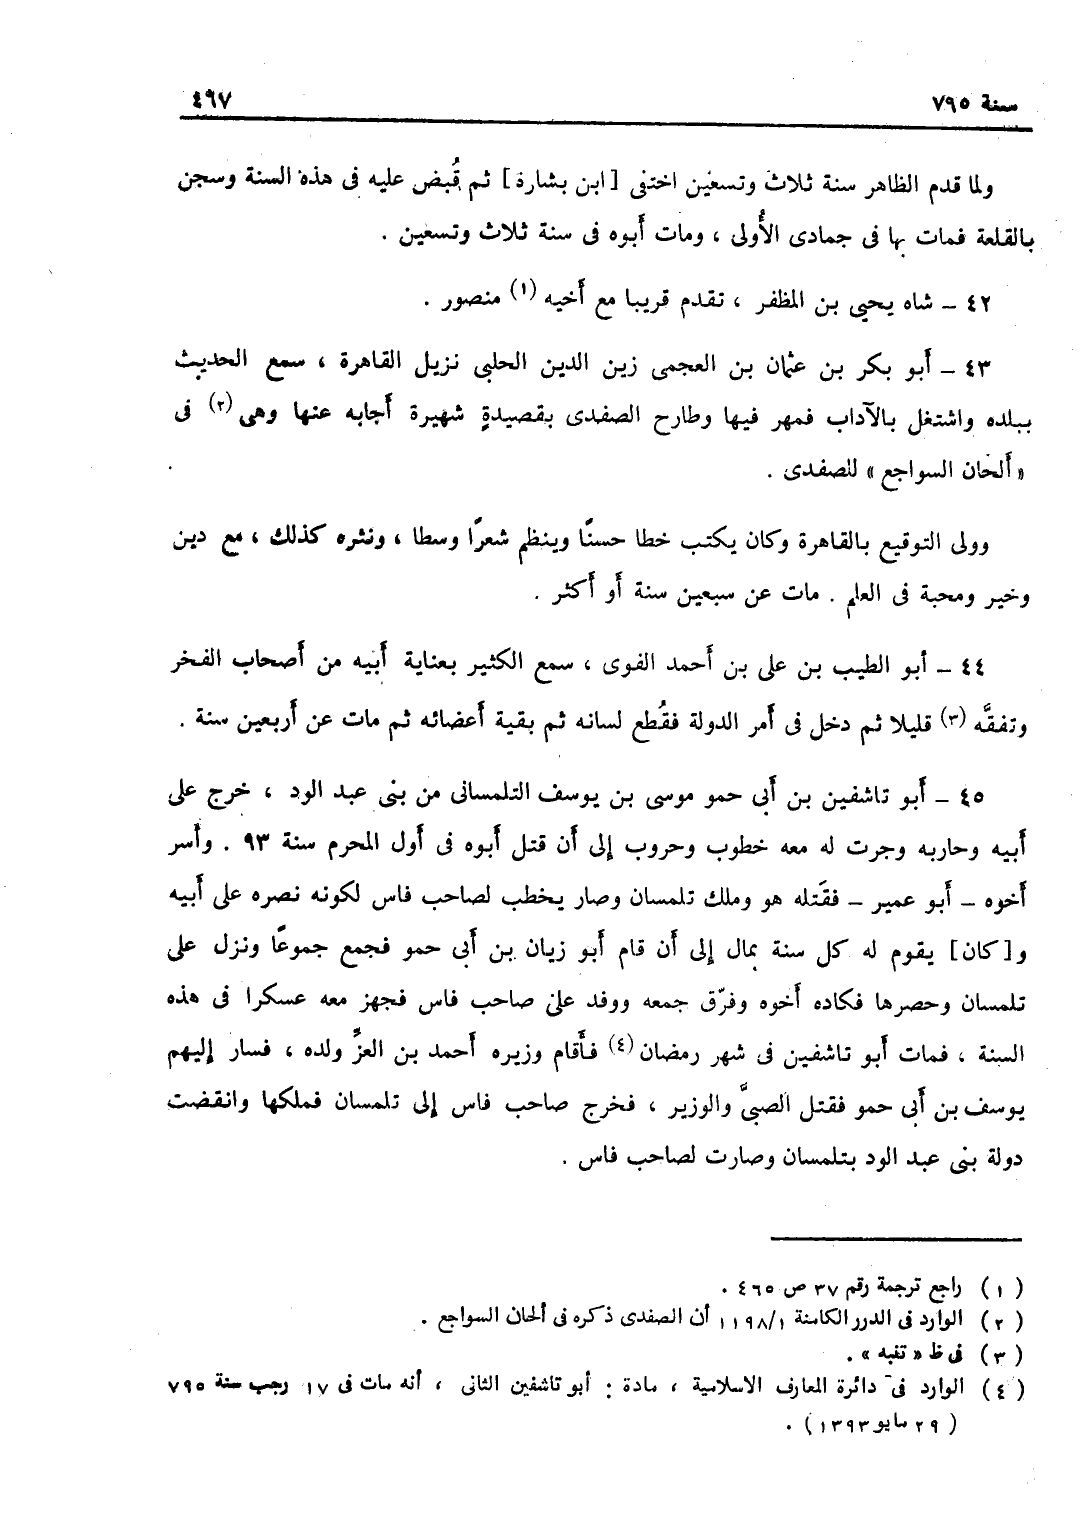 سنة ٧٩٥
٤٩٧
ولما قدم الظاهر سنة ثلاث وتسعين اختفى [ابن بشارة] ثم قُبض عليه فى هذه السنة وسجن
بالقلعة فمات بها فى جمادى الأُولى ، ومات أَبوه فى سنة ثلاث وتسعين .
٤٢ ـ شاه يحيى بن المظفر ، تقدم قريبا مع أَخيه (١) منصور .
٤٣ ـ أَبو بكر بن عثمان بن العجمى زين الدين الحلبى نزيل القاهرة ، سمع الحديث
ببلده واشتغل بالآداب فمهر فيها وطارح الصفدى بقصيدةٍ شهيرة أَجابه عنها وهى (٢) فى
« أَلحان السواجع » للصفدى .
وولى التوقيع بالقاهرة وكان يكتب خطا حسنًا وينظم شعرًا وسطا ، ونثره كذلك ، مع دين
وخير ومحبة فى العلم . مات عن سبعين سنة أَو أَكثر .
٤٤ ـ أبو الطيب بن على بن أَحمد الفوى ، سمع الكثير بعناية أَبيه من أَصحاب الفخر
وتفقَّه (٣) قليلا ثم دخل فى أَمر الدولة فقُطع لسانه ثم بقية أَعضائه ثم مات عن أَربعين سنة .
٤٥ ـ أَبو تاشفين بن أَبى حمو موسى بن يوسف التلمسانى من بنى عبد الود ، خرج على
أَبيه وحاربه وجرت له معه خطوب وحروب إلى أَن قتل أَبوه فى أَول المحرم سنة ٩٣ . وأَسر
أَخوه ـ أَبو عمير ـ فقَتله هو وملك تلمسان وصار يخطب لصاحب فاس لكونه نصره على أَبيه
و[كان] يقوم له كل سنة بمال إلى أَن قام أَبو زيان بن أَبى حمو فجمع جموعًا ونزل على
تلمسان وحصرها فكاده أَخوه وفرّق جمعه ووفد على صاحب فاس فجهز معه عسكرا فى هذه
السنة ، فمات أَبو تاشفين فى شهر رمضان (٤) فأَقام وزيره أَحمد بن العزِّ ولده ، فسار إليهم
يوسف بن أَبى حمو فقتل الصبىَّ والوزير ، فخرج صاحب فاس إلى تلمسان فملكها وانقضت
دولة بنى عبد الود بتلمسان وصارت لصاحب فاس .
(١) راجع ترجمة رقم ٣٧ ص ٤٦٥ .
(٢) الوارد فى الدرر الكامنة ١/١١٩٨ أن الصفدى ذكره فى ألحان السواجع .
(٣) فى ظ « تفبه » .
(٤) الوارد فى دائرة المعارف الاسلامية ، مادة : أبو تاشفين الثانى ، أنه مات فى ١٧ رجب سنة ٧٩٥
(٢٩ مايو ١٣٩٣) .